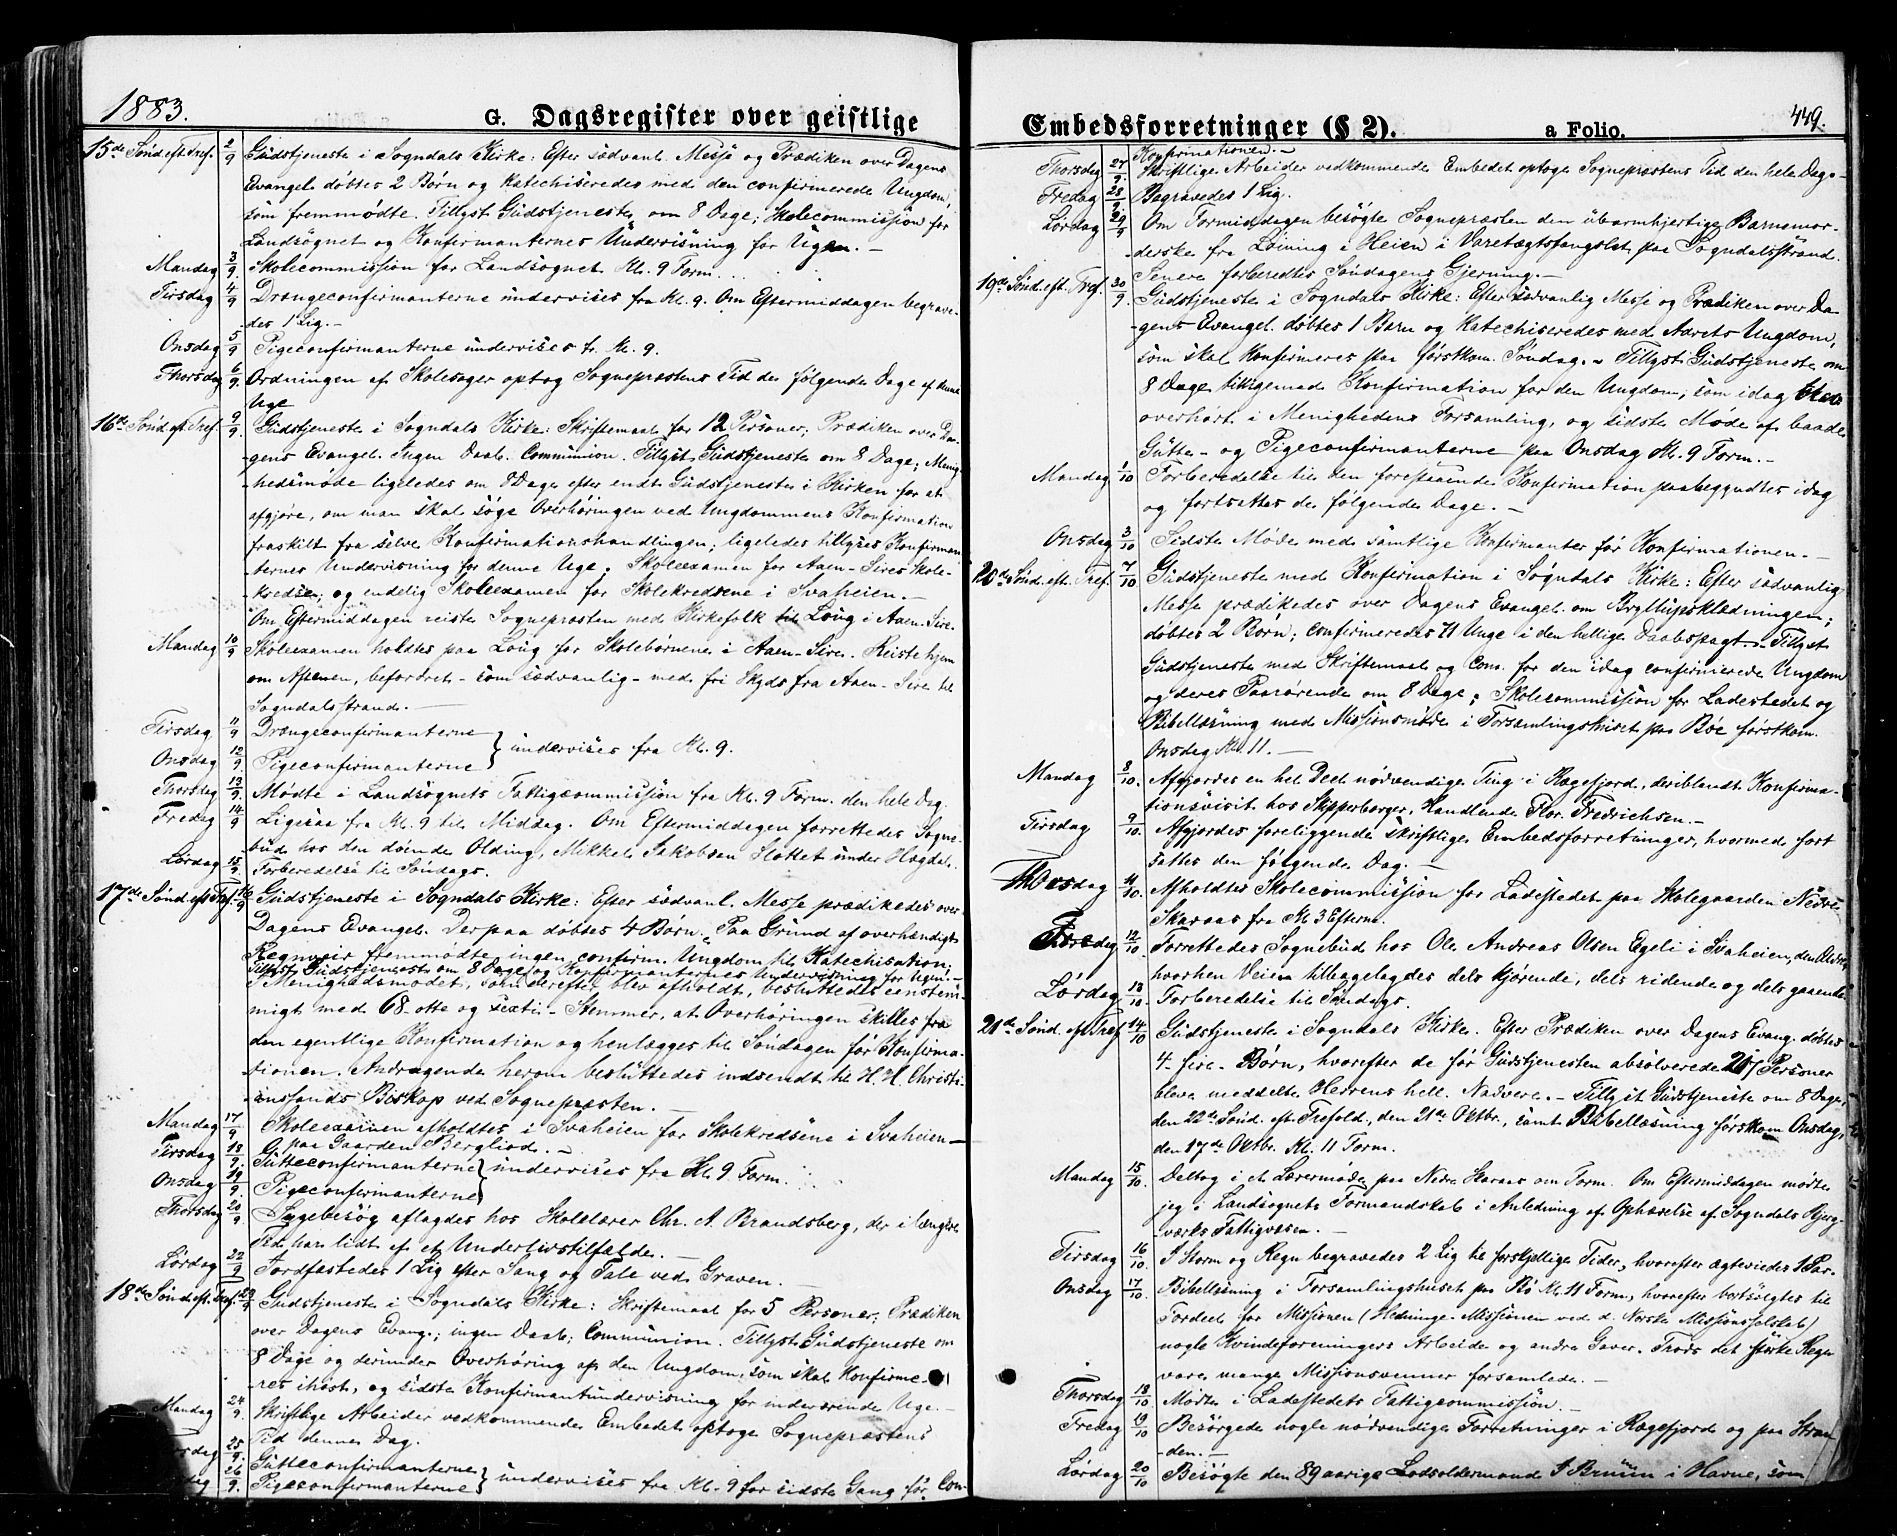 1883.
G. Dagsregister over geistlige
15de Sönd. eft. Tref. 2/9 Gudstjeneste i Sogndals Kirke: Efter sædvanl. Messe og Prædiken over Dagens
Evangel. döbtes 2 Börn og Katechiseredes med den confirmerede Ungdom,
som fremmödte. Tillyst Gudstjeneste om 8 Dage; Skolecommission for
Landsognet og Konfirmanternes Undervisning for Ugen. –
Mandag 3/9 Skolecommission for Landsognet Kl. 9 Form.
Tirsdag 4/9 Drengeconfirmanterne undervises fra Kl. 9. Om Eftermiddagen begrave-
des 1 Lig. –
Onsdag 5/9 Pigeconfirmanterne undervises fr. Kl. 9.
Thorsdag 6/9 Ordningen af Skolesager optog Sognepræstens Tid de fölgende Dage af denne
Uge
16de Sönd. eft. Tref. 9/9 Gudstjeneste i Sogndals Kirke: Skriftemaal for 12 Personer; Prædiken over Da-
gens Evangel. Ingen Daab. Communion. Tillyst Gudstjeneste om 8 Dage; Menig-
hedsmöde ligeledes om 8 Dage efter endt Gudstjeneste i Kirken for at
afgjöre, om man skal söge Overhöringen ved Ungdommens Konfirmation
fraskilt fra selve Konfirmationshandlingen; ligeledes tillyses Konfirman-
ternes Undervisning for denne Uge. Skoleexamen for Aaen-Sires Skole-
kreds; og endelig Skoleexamen for Skolekredsene i Svaheien. –
Om Eftermiddagen reiste Sognepræsten med Kirkefolk til Loug i Aaen-Sire.
Mandag 10/9 Skoleexamen holdtes paa Loug for Skolebörnene i Aaen-Sire. Reiste hjem
om Aftenen, befordret – som sædvanlig – med fri Skyds fra Aaen-Sire til
Sogndalsstrand. –
Tirsdag 11/9 Drengeconfirmanterne } undervises fra Kl. 9.
Onsdag 12/9 Pigeconfirmanterne
Thorsdag 13/9 Mödte i Landsognets Fattigcommission fra Kl. 9 Form. den hele Dag.
Fredag 14/9 Ligesaa fra Kl. 9 til Middag. Om Eftermiddagen forrettedes Sogne-
bud hos den döende Olding, Mikkel Jakobsen Slottet under Hogdal.
Lördag 15/9 Forberedelse til Söndags.
17de Sönd. eft. Tref. 16/9 Gudstjeneste i Sogndals Kirke: Efter sædvanl. Messe prædikedes over
Dagens Evangel. Derpaa döbtes 4 Börn. Paa Grund af overhændigt
Regnveir fremmödte ingen confirm. Ungdom til Katechisation.
Tillyst Gudstjeneste om 8 Dage og Konfirmanternes Undervisning for Ugen. –
I Menighedsmödet, som derefter blev afholdt, besluttedes eenstem-
migt med 68 – otte og sexti – Stemmer, at Overhöringen skilles fra
den egentlige Konfirmation og henlægges til Söndagen för Konfirma-
tionen. Andragende herom besluttedes indsendt til H. H. Christi-
ansands Biskop ved Sognepræsten. –
Mandag 17/9 Skoleexamen afholdtes i Svaheien for Skolekredsene i Svaheien –
paa Gaarden Bergliod. –
Tirsdag 18/9 Gutteconfirmanterne } undervises fra Kl. 9 Form.
Onsdag 19/9 Pigeconfirmanterne
Thorsdag 20/9 Sygebesög aflagdes hos Skolelærer Chr. A. Brandsberg, der i længere
Tid har lidt af et Underlivstilfælde. –
Lördag 22/9 Jordfæstedes 1 Lig efter Sang og Tale ved Graven. –
18de Sönd. eft. Tref. 23/9 Gudstjeneste i Sogndals Kirke: Skriftemaal for 5 Personer; Prædiken
over Dagens Evang.; ingen Daab; Communion. Tillyst Gudstjeneste om
8 Dage og derunder Overhöring af den Ungdom, som skal Konfirme-
res ihöst, og sidste Konfirmantundervisning for inderværende Uge. –
Mandag 24/9 Skriftlige Arbeider vedkommende Embedet optoge Sognepræstens
Tid denne Dag.
25/9 Gutteconfirmanterne } undervises fra Kl. 9 for sidste Gang för Con-
26/9 Pigeconfirmanterne
Embedsforretninger (§ 2).
a Folio.
449.
Konfirmationen. –
Thorsdag 27/9 Skriftlige Arbeider vedkommende Embedet optoge Sognepræstens Tid den hele Dag.
Fredag 28/9 Begravedes 1 Lig.
Lördag 29/9 Om Formiddagen besögte Sognepræsten den ubarmhjertige Barnemor-
derske fra Löining i Heien i Varetægtsfængslet paa Sogndalsstrand.
Senere forberedtes Söndagens Gjerning. –
19de Sönd. eft. Tref. 30/9 Gudstjeneste i Sogndals Kirke: Efter sædvanlig Messe og Prædiken over Da-
gens Evangel. döbtes 1 Barn og Katechiseredes med Aarets Ungdom,
som skal Konfirmeres paa förstkom. Söndag. – Tillyst Gudstjeneste om
8 Dage ligesaa Konfirmation for den Ungdom, som idag blev
overhört i Menighedens Forsamling, og sidste Möde af baade
Gutte- og Pigeconfirmanterne paa Onsdag Kl. 9 Form. –
Mandag 1/10 Forberedelse til den forestaaende Konfirmation paabegyndtes idag
og fortsattes de fölgende Dage. –
Onsdag 3/10 Sidste Möde med samtlige Konfirmanter för Konfirmationen. –
20de Sönd. eft. Tref. 7/10 Gudstjeneste med Konfirmation i Sogndals Kirke: Efter sædvanlig
Messe prædikedes over Dagens Evangel. om Bryllupsklædningen;
döbtes 2 Börn; confirmeredes 71 Unge i den hellige Daabspagt. – Tillyst
Gudstjeneste med Skriftemaal og Com. for den idag confirmerede Ungdom
og deres Paarörende om 8 Dage; Skolecommission for Ladestedet og
Bibellæsning med Missionsmöde i Forsamlingshuset paa Böe förstkom.
Onsdag Kl. 11. –
Mandag 8/10 Afgjordes en hel Deel nödvendige Ting i Rægefjord, deriblandt Konfirma-
tionsvisit hos Skipperborger, Handlende Flor. Fredrichsen. –
Tirsdag 9/10 Afgjordes foreliggende skriftlige Embedsforretninger, hvormed fort-
sattes den fölgende Dag. –
Thorsdag 11/10 Afholdtes Skolecommission for Ladestedet paa Skolegaarden Nedre
Skaraas fra Kl. 3 Efterm.
Fredag 12/10 Forrettedes Sognebud hos Ole Andreas Olsen Egeli i Svaheien,
hvorhen Veien tilbagelagdes dels kjörende, dels ridende og dels gaaende
Lördag 13/10 Forberedelse til Söndags.
21de Sönd. eft. Tref. 14/10 Gudstjeneste i Sogndals Kirke. Efter Prædiken over Dagens Evang. döbtes
4 – fire – Börn, hvorefter de för Gudstjenesten absolverede Personer
bleve meddelte Herrens hell. Nadvere. – Tillyst Gudstjeneste om 8 Dage,
den 22de Sönd. eft. Trefold., den 21de Oktbr., samt Bibellæsning förstkom. Onsdag,
den 17de Oktbr. Kl. 11 Form.
Mandag 15/10 Deltog i et Læremöde paa Nedre Skaraas om Form. Om Eftermiddagen mödte
jeg i Landsognets Formandskab i Anledning af Ophævelse af Sogndals Bjerg-
værks Fattigvæsen. –
Tirsdag 16/10 I Storm og Regn begravedes 2 Lig til forskjellige Tider, hvorefter ægteviedes 1 Par.
Onsdag 17/10 Bibellæsning i Forsamlingshuset paa Bö Kl. 11 Form., hvorefter bortsolgtes til
Fordeel for Missionen (Hedninge-Missionen ved d. Norske Missionsselskab)
nogle Kvindeforeningers Arbeide og andre Gaver. Trods det stærke Regn
vare mange Missionsvenner forsamlede. –
Thorsdag 18/10 Mödte i Ladestedets Fattigcommission. –
Fredag 19/10 Besörgede nogle nödvendige Forretninger i Rægefjord og paa Stran-
den. –
Lördag 20/10 Besögte den 89 aarige Lodsoldermand J. Bruun i Havne, som